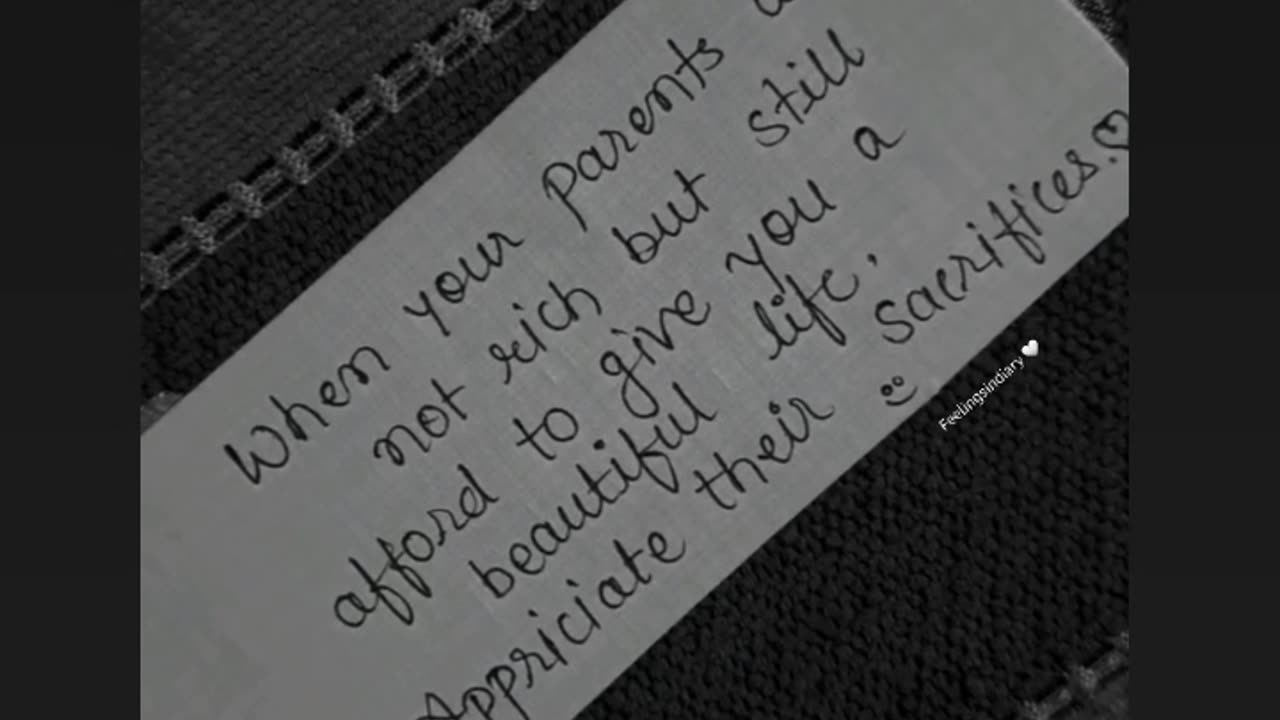 When your parents
not rich but still
afford to give you a
beautiful life.
Appriciate their sacrifices.♡
Feelingsindiary🤍